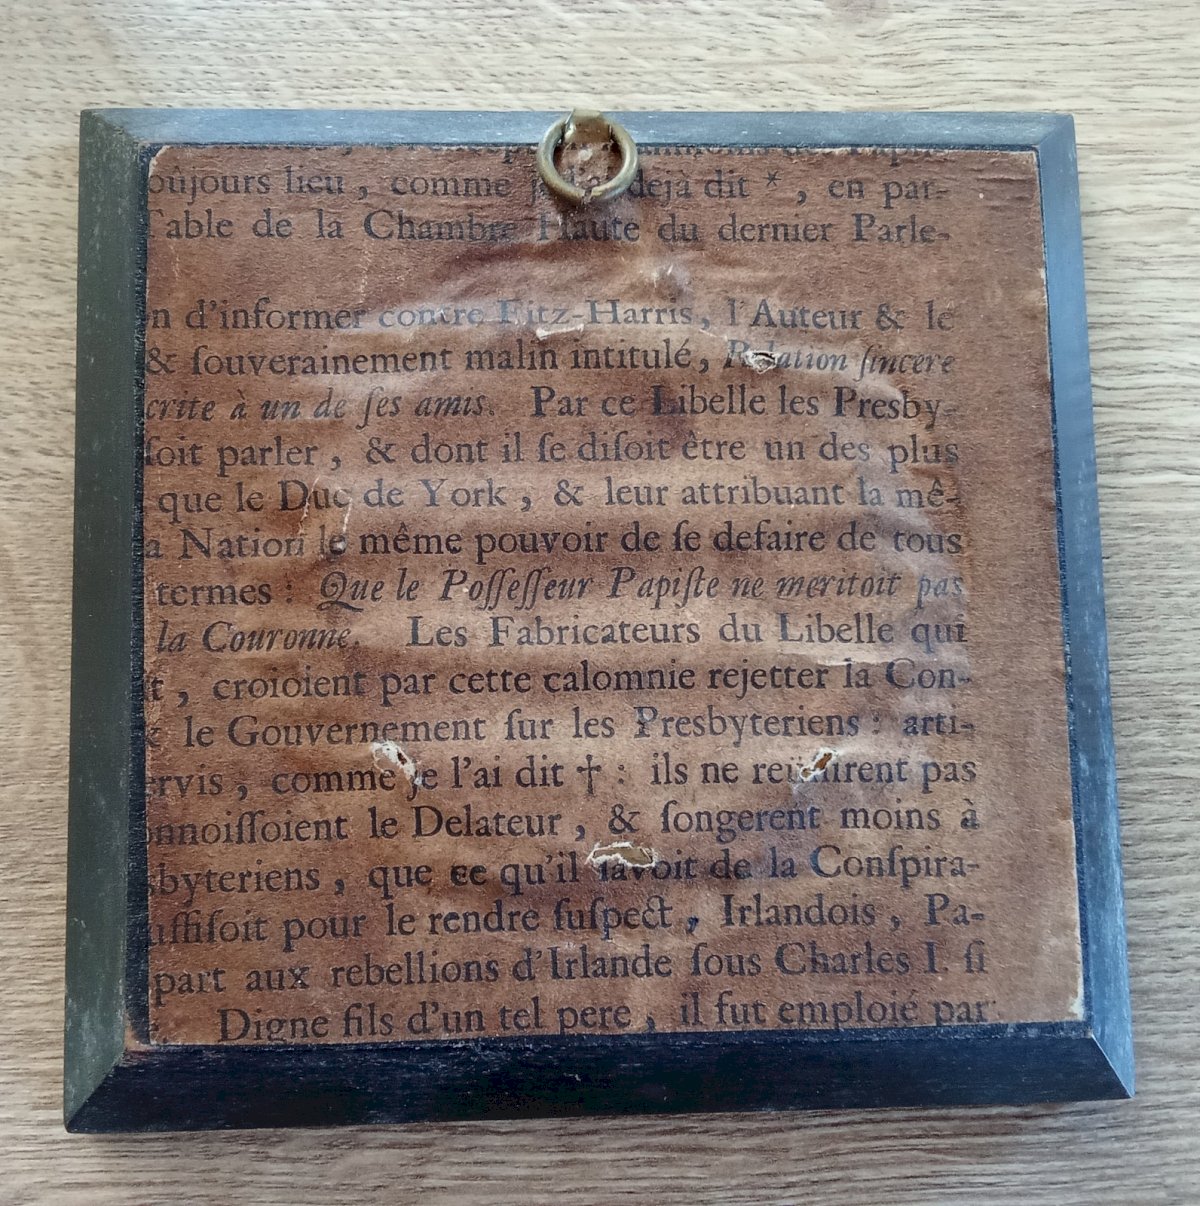 oûjours lieu, comme je l'ai dejà dit *, en par-
Table de la Chambre Haute du dernier Parle-
n d'informer contre Fitz-Harris, l'Auteur & le
& ſouverainement malin intitulé, Relation ſincere
crite à un de ſes amis. Par ce Libelle les Presby-
ſoit parler, & dont il ſe diſoit être un des plus
que le Duc de York, & leur attribuant la mê-
a Nation le même pouvoir de ſe defaire de tous
termes: Que le Poſſeſſeur Papiſte ne meritoit pas
la Couronne. Les Fabricateurs du Libelle qui
t, croioient par cette calomnie rejetter la Con-
& le Gouvernement ſur les Presbyteriens: arti-
ervis, comme je l'ai dit †: ils ne reüſſirent pas
onnoiſſoient le Delateur, & ſongerent moins à
sbyteriens, que ce qu'il ſavoit de la Conſpira-
uffiſoit pour le rendre ſuſpect, Irlandois, Pa-
part aux rebellions d'Irlande ſous Charles I. ſi
e. Digne fils d'un tel pere, il fut emploié par